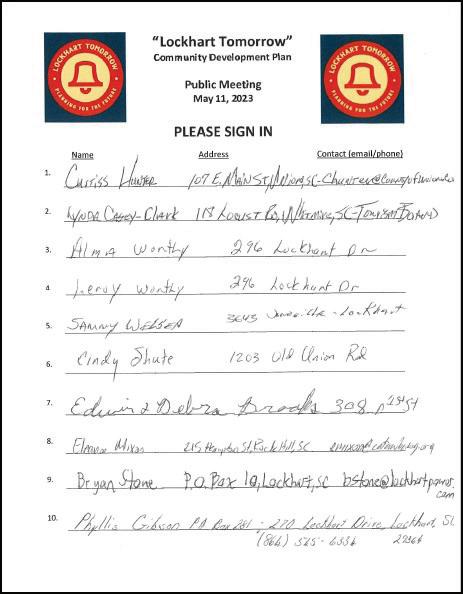 LOCKHART TOMORROW
PLANNING FOR THE FUTURE
"Lockhart Tomorrow"
Community Development Plan
Public Meeting
May 11, 2023
LOCKHART TOMORROW
PLANNING FOR THE FUTURE
PLEASE SIGN IN
Name Address Contact (email/phone)
1. Curtiss Hunter 107 E. Main St, Union, SC-
2. Lynda Casey-Clark 118 Locust Rd, Whitmire, SC-Tourism Board
3. Alma Worthy 296 Lockhart Dr
4. Leroy Worthy 296 Lockhart Dr
5. Sammy 3643 Jonesville-Lockhart
6. Cindy Shute 1203 Old Union Rd
7. Edwin & Debra Brooks 308 N 1st St
8. Eleanor Mixon 215 Hampton St, Rock Hill, SC
9. Bryan Stone P.O. Box 10, Lockhart, SC
.com
10. Phyllis Gibson PO Box 261; 270 Lockhart Drive, Lockhart, SC
(864) 565-6336 29364